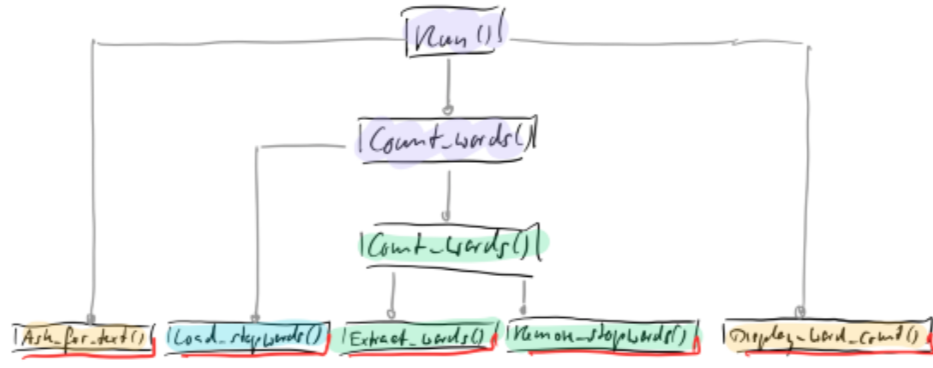 Run()
Count_words()
Count_words()
Ask_for_text()
Load_stopwords()
Extract_words()
Remove_stopwords()
Display_word_count()